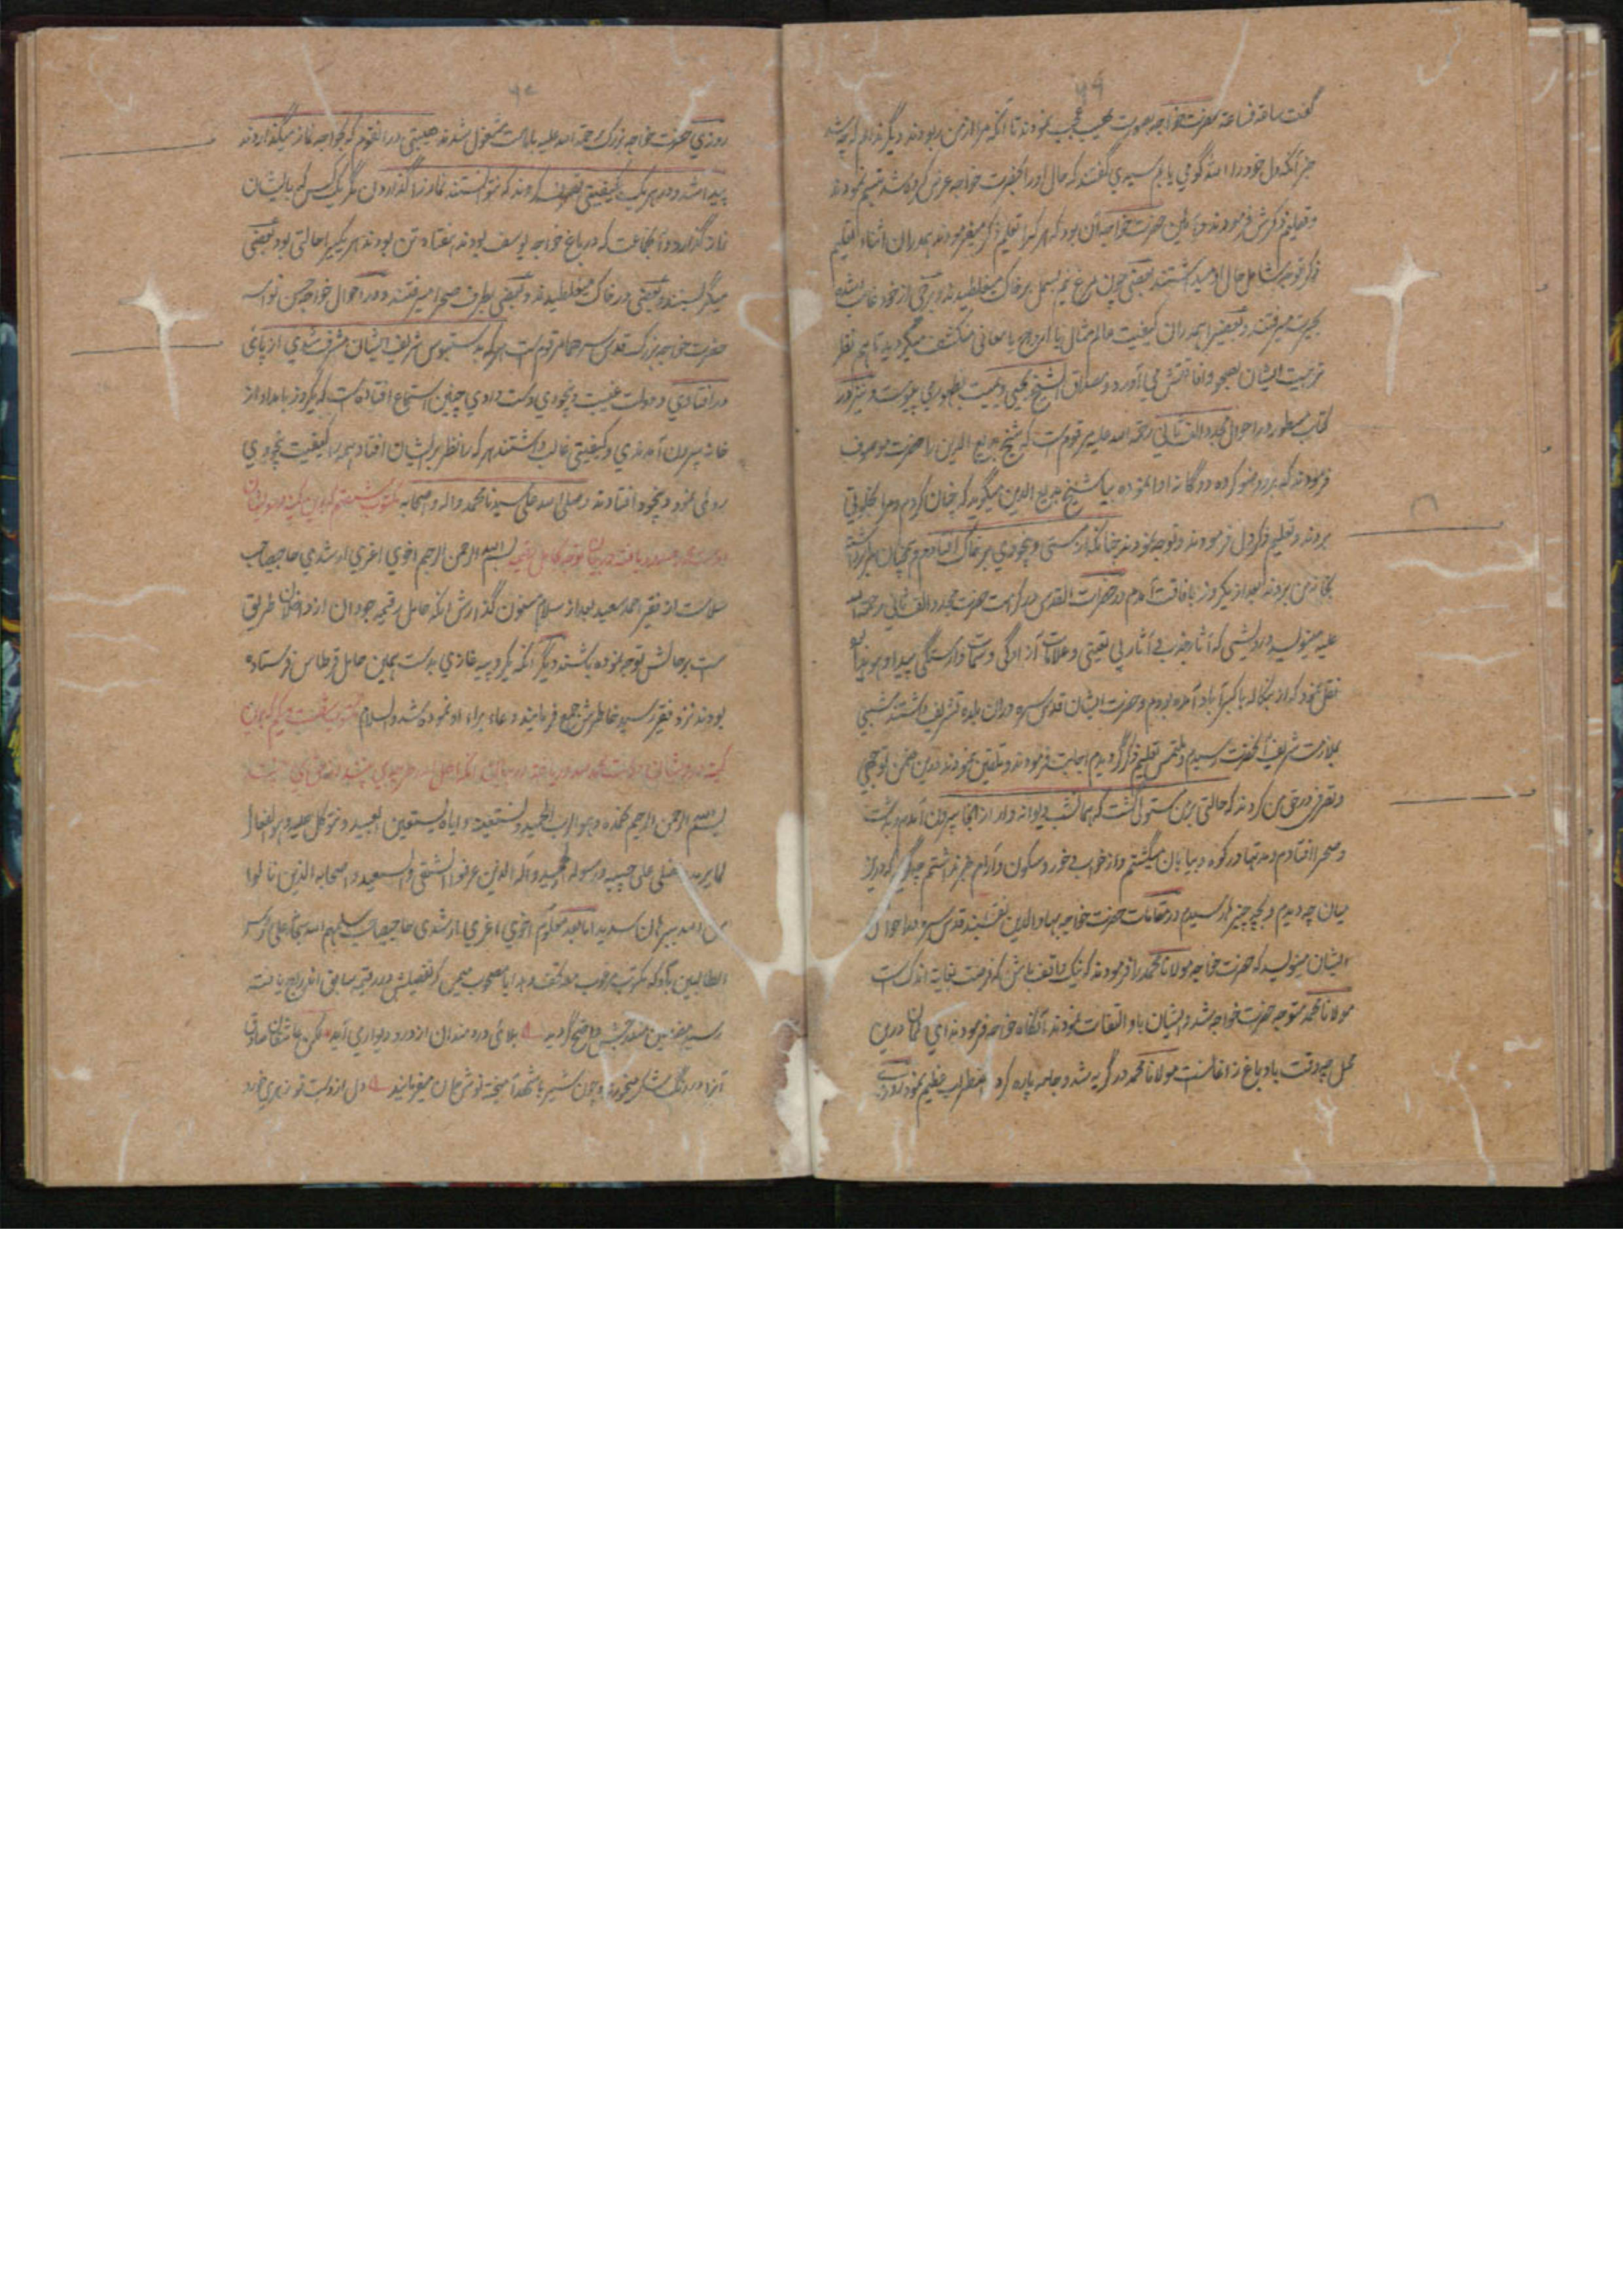 گفت ساعة فساعة حضرت خواجه بصورت عجیب نمودند تا آنکه مرا از من ربودند دیگر ندانم که چه شد
جز آنکه دل خود را الله گو می یابم سیدی گفتند که حال او را بحضرت خواجه عرض کرده شد تبسم نمودند
و تعلیم ذکرش فرمودند و طریق حضرت خواجه آن بود که هر کرا تعلیم ذکر میفرمودند همدران اثناء تعلیم
ذکر توجه شامل حال او میداشتند بعضی چون مرغ نیم بسمل بر خاک میغلطیدند و برخی از خود غائب شده
بحیرت میرفتند و بعضی را همدران کیفیت عالم مثال یا ارواح یا معانی منکشف میگردید تا هم نظر
تربیت ایشان بصحو و افاقتش می آورد و مصداق الشیخ یحیی و یمیت بظهور می پیوست و نیز در
کتاب مسطور در احوال مجدد الف ثانی رحمة الله علیه مرقوم است که شیخ بدیع الدین را حضرت موصوف
فرمودند که برو وضو کرده دوگانه ادا نموده بیا شیخ بدیع الدین میگوید که چنان کردم و مرا بخلوتی
بردند و تعلیم ذکر دل فرمودند و توجه نمودند چنانکه از مستی و بیخودی بر خاک افتادم همچنان برداشته
بخانه من بردند بعد از یکروز بافاقت آمدم در حضرات القدس مذکر است حضرت مجدد الف ثانی رحمة الله
علیه مینویسد درویشی که آثار جذب و آثار بی تعینی و علامات آزادگی و سمات وارستگی پیدا و هویدا
نقل نمود که از بنگاله باکبرآباد آمده بودم و حضرت ایشان قدس سره دران بلده تشریف داشتند شبی
بملازمت شریف آنحضرت رسیدم و ملتمس تعلیم ذکر گردیدم اجابت فرمودند و تلقین نمودند درین ضمن توجهی
و تصرفی در حق من کردند که حالتی بر من مستولی گشت که همانشب دیوانه وار از آنجا بیرون آمدم و بدشت
و صحرا افتادم و مدتها در کوه و بیابان میگشتم و از خواب و خور و سکون و آرام خبر نداشتم چگویم که درین
میان چه دیدم و بچه چیزها رسیدم در مقامات حضرت خواجه بهاء الدین نقشبند قدس سره در احوال
ایشان مینویسد که حضرت خواجه مولانا محمد را فرمودند که نیک واقف باش که فرصت بغایة اندک است
مولانا محمد متوجه حضرت خواجه شد و ایشان باو التفات نمودند آنگاه خواجه فرمودند ای درین
محل چه وقت باد و باغ مولانا محمد در گریه شد و جامه پاره کرد و اضطراب عظیم نمود
روزی حضرت خواجه بزرگ رحمة الله علیه بامامت مشغول شدند هیبتی در انقوم که بخواجه نماز میگذاردند
پیدا شد و در هر یک کیفیتی تصرف کردند که نتوانستند نماز را گذاردن مگر یک کس که بایشان
نماز گذارد و آن جماعت که در باغ خواجه یوسف بودند هفتاد تن بودند هر یکیرا حالتی بود بعضی
میگریستند و بعضی در خاک میغلطیدند و بعضی بطرف صحرا میرفتند و در احوال خواجه حسن نواسه
حضرت خواجه بزرگ قدس سرهما مرقوم است هر که بدستبوس شریف ایشان مشرف شدی از پای
در افتادی و دولت غیبت و بیخودی دست دادی چنین استماع افتاده است که یکروز بامداد از
خانه بیرون آمدندی و کیفیتی غالب داشتند هر کرا نظر بر ایشان افتاد همه را کیفیت بیخودی
روی نمود و بیخود افتادند و صلی الله علی سیدنا محمد و اله و اصحابه مکتوب شصتم
بسم الله الرحمن الرحیم اخوی اعزی ارشدی حاجیصاحب
سلامت از فقیر احمد سعید بعد از سلام مسنون گذارش آنکه حامل رقیمه جودان از داخلان طریق
ست بر حالش توجه نموده باشند دیگر آنکه یکروپیه غازی بدست همین حامل قرطاس فرستاده
بودند نزد فقیر رسید خاطرش جمع فرمایند دعاء براء او نموده شد والسلام
بسم الله الرحمن الرحیم نحمده و هو الرب الحمید و نستعینه و ایاه یستعین العبید و نتوکل علیه و هو الفعال
لما یرید نصلی علی حبیبه و رسوله المجید و آله الذین عرفوا الشقی والسعید و اصحابه الذین نالوا
اما بعد معلوم اخوی اعزی ارشدی حاجیصاحب سلمهم الله سبحانه علی رؤس
الطالبین باد که مکتوب مرغوب معه تحف و هدایا مصحوب که تفصیلش در رقیمه سابق اندراج یافته
رسید مضامین مندرجه اش واضح گردید بلائی دردمندان از در و دیوار می آید لکن عاشقان صادق
آنرا در رنگ شکر میخورند و چون شیر با شهد آمیخته نوش جان میفرمایند دل از دست تو زهری خورد